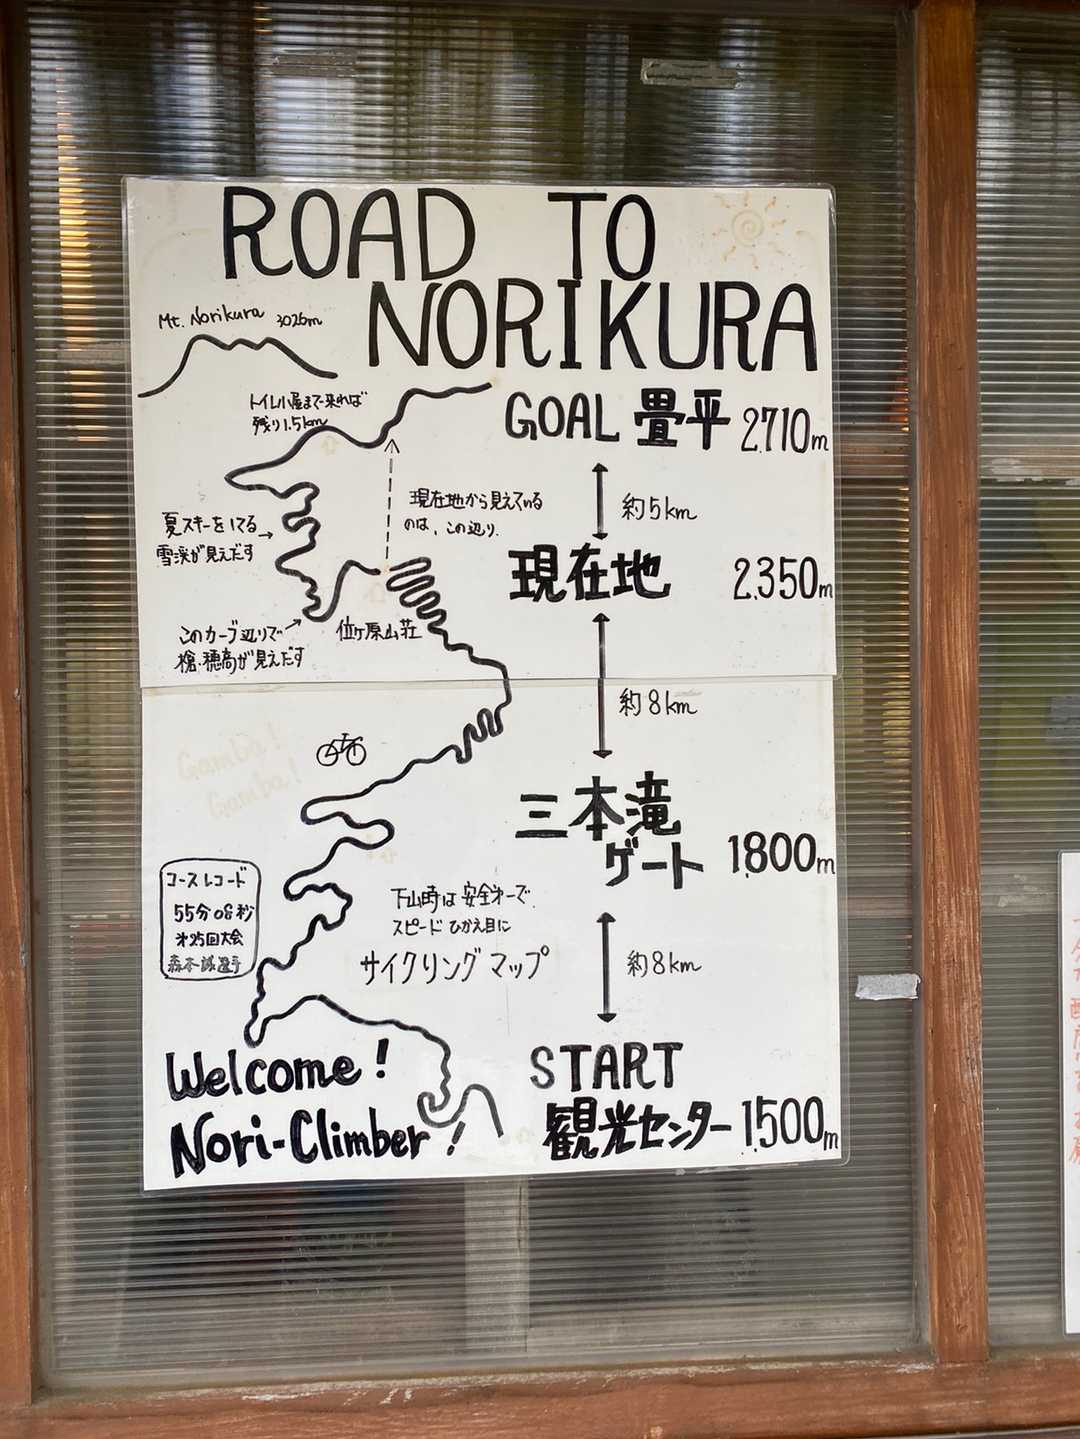 ROAD TO
NORIKURA
Mt. Norikura 3026m
トイレ小屋まで来れば
残り1.5km
GOAL 畳平 2,710m
約5km
現在地から見えている
のは、この辺り.
夏スキーをしてる
雪渓が見えだす
現在地 2,350m
このカーブ辺りで
槍・穂高が見えだす
位ヶ原山荘
約8km
Gamba!
Gamba!
三本滝
ゲート 1,800m
コースレコード
55分08秒
才25回大会
森本誠選手
下山時は安全才一で、
スピードひかえ目に
サイクリングマップ
約8km
Welcome!
Nori-Climber!
START
観光センター 1,500m